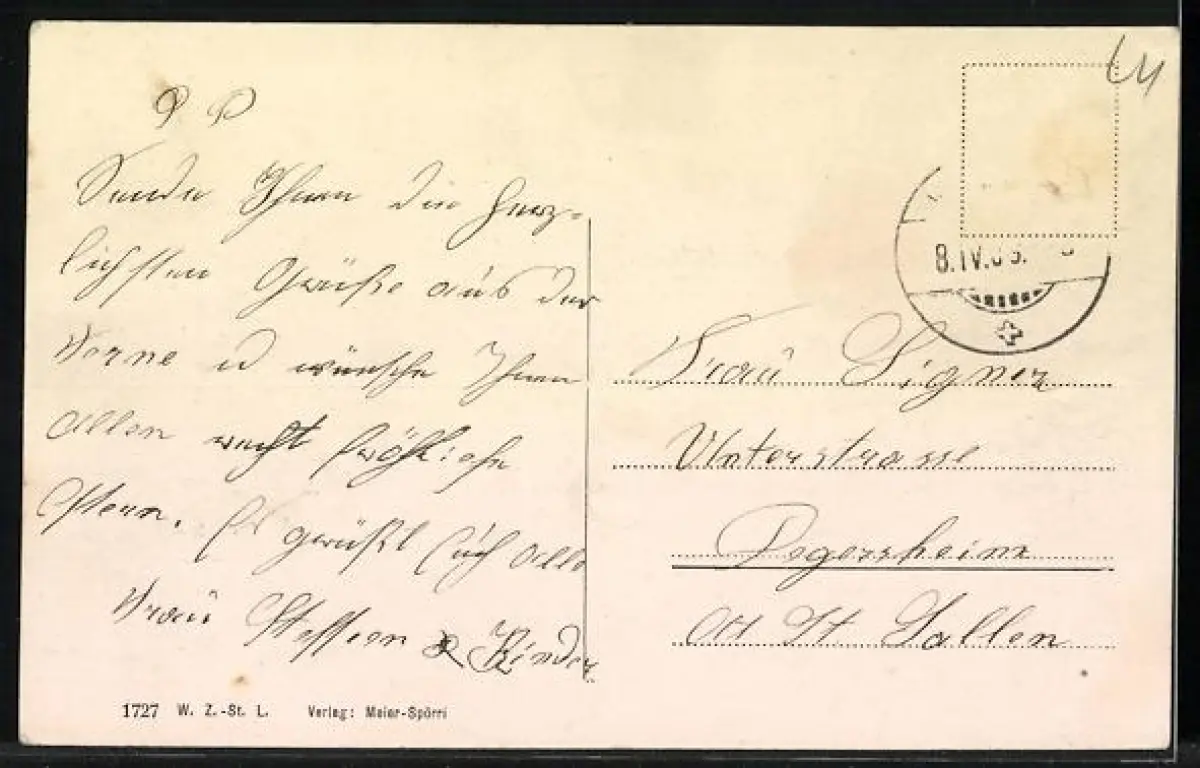 P P
Sende Ihnen die herz-
lichsten Grüße aus der
Ferne u wünsche Ihnen
allen recht fröhliche
Ostern. Es grüßt Euch alle
Frau Steffen & Kinder
1727 W. Z.-St. L. Verlag: Meier-Spörri
8.IV.
Frau Signer
Unterstrasse
Degersheim
Ct St Gallen